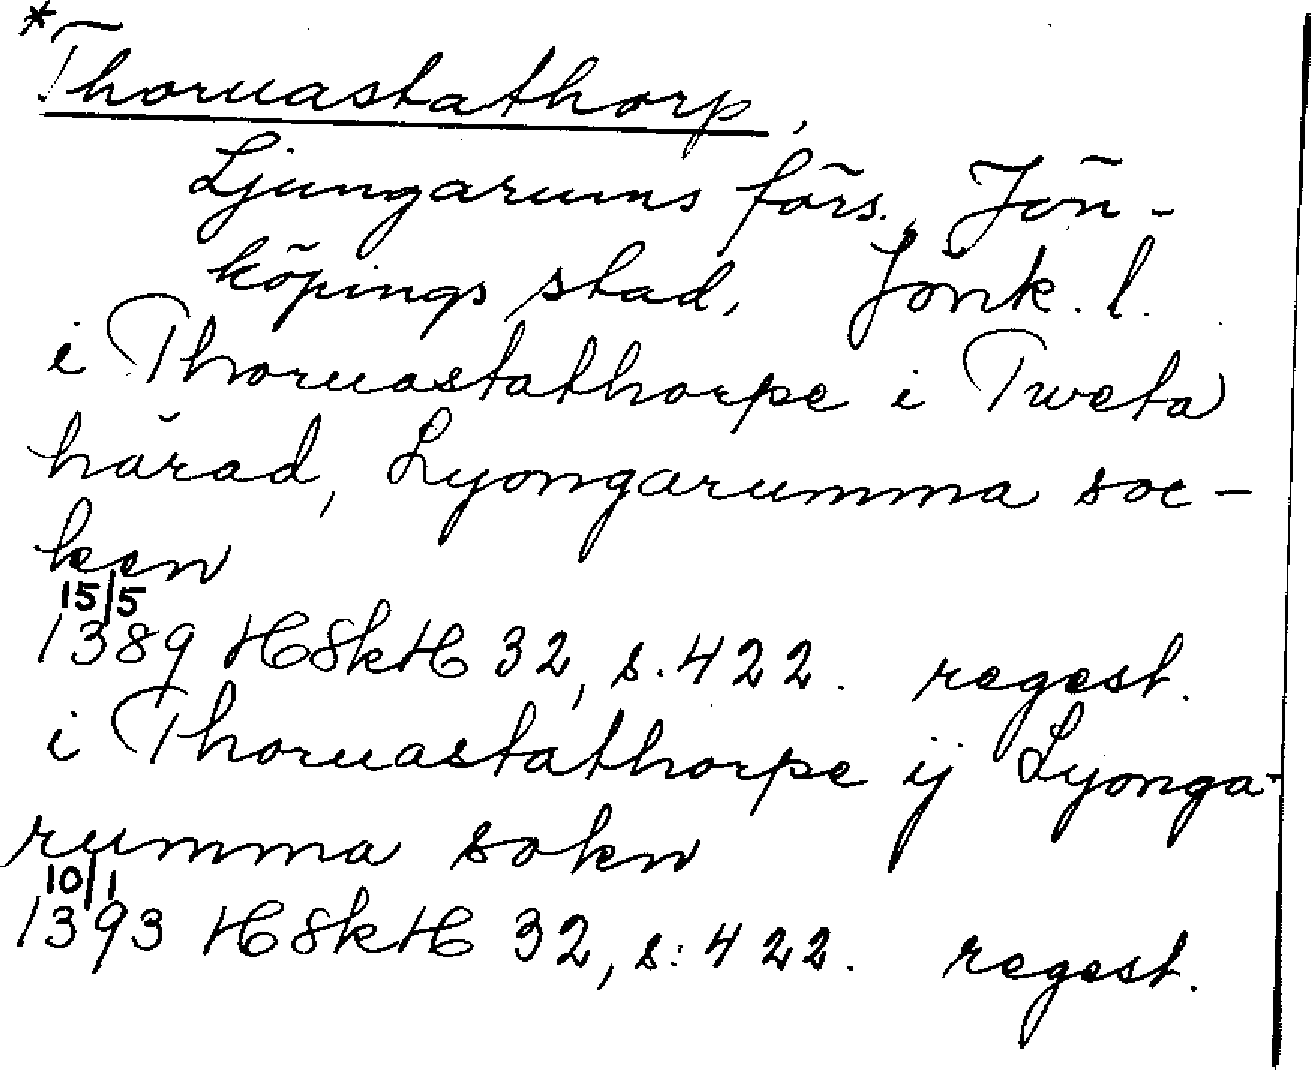 *Thoruastathorp,
Ljungarums förs., Jön-
köpings stad, Jönk. l.
i Thoruastathorpe i Tweta
härad, Lyongarumma soc-
ken
15/5
1389 HSkH 32, s. 422. regest.
i Thoruastathorpe ij Lyonga-
rumma sokn
10/1
1393 HSkH 32, s: 422. regest.